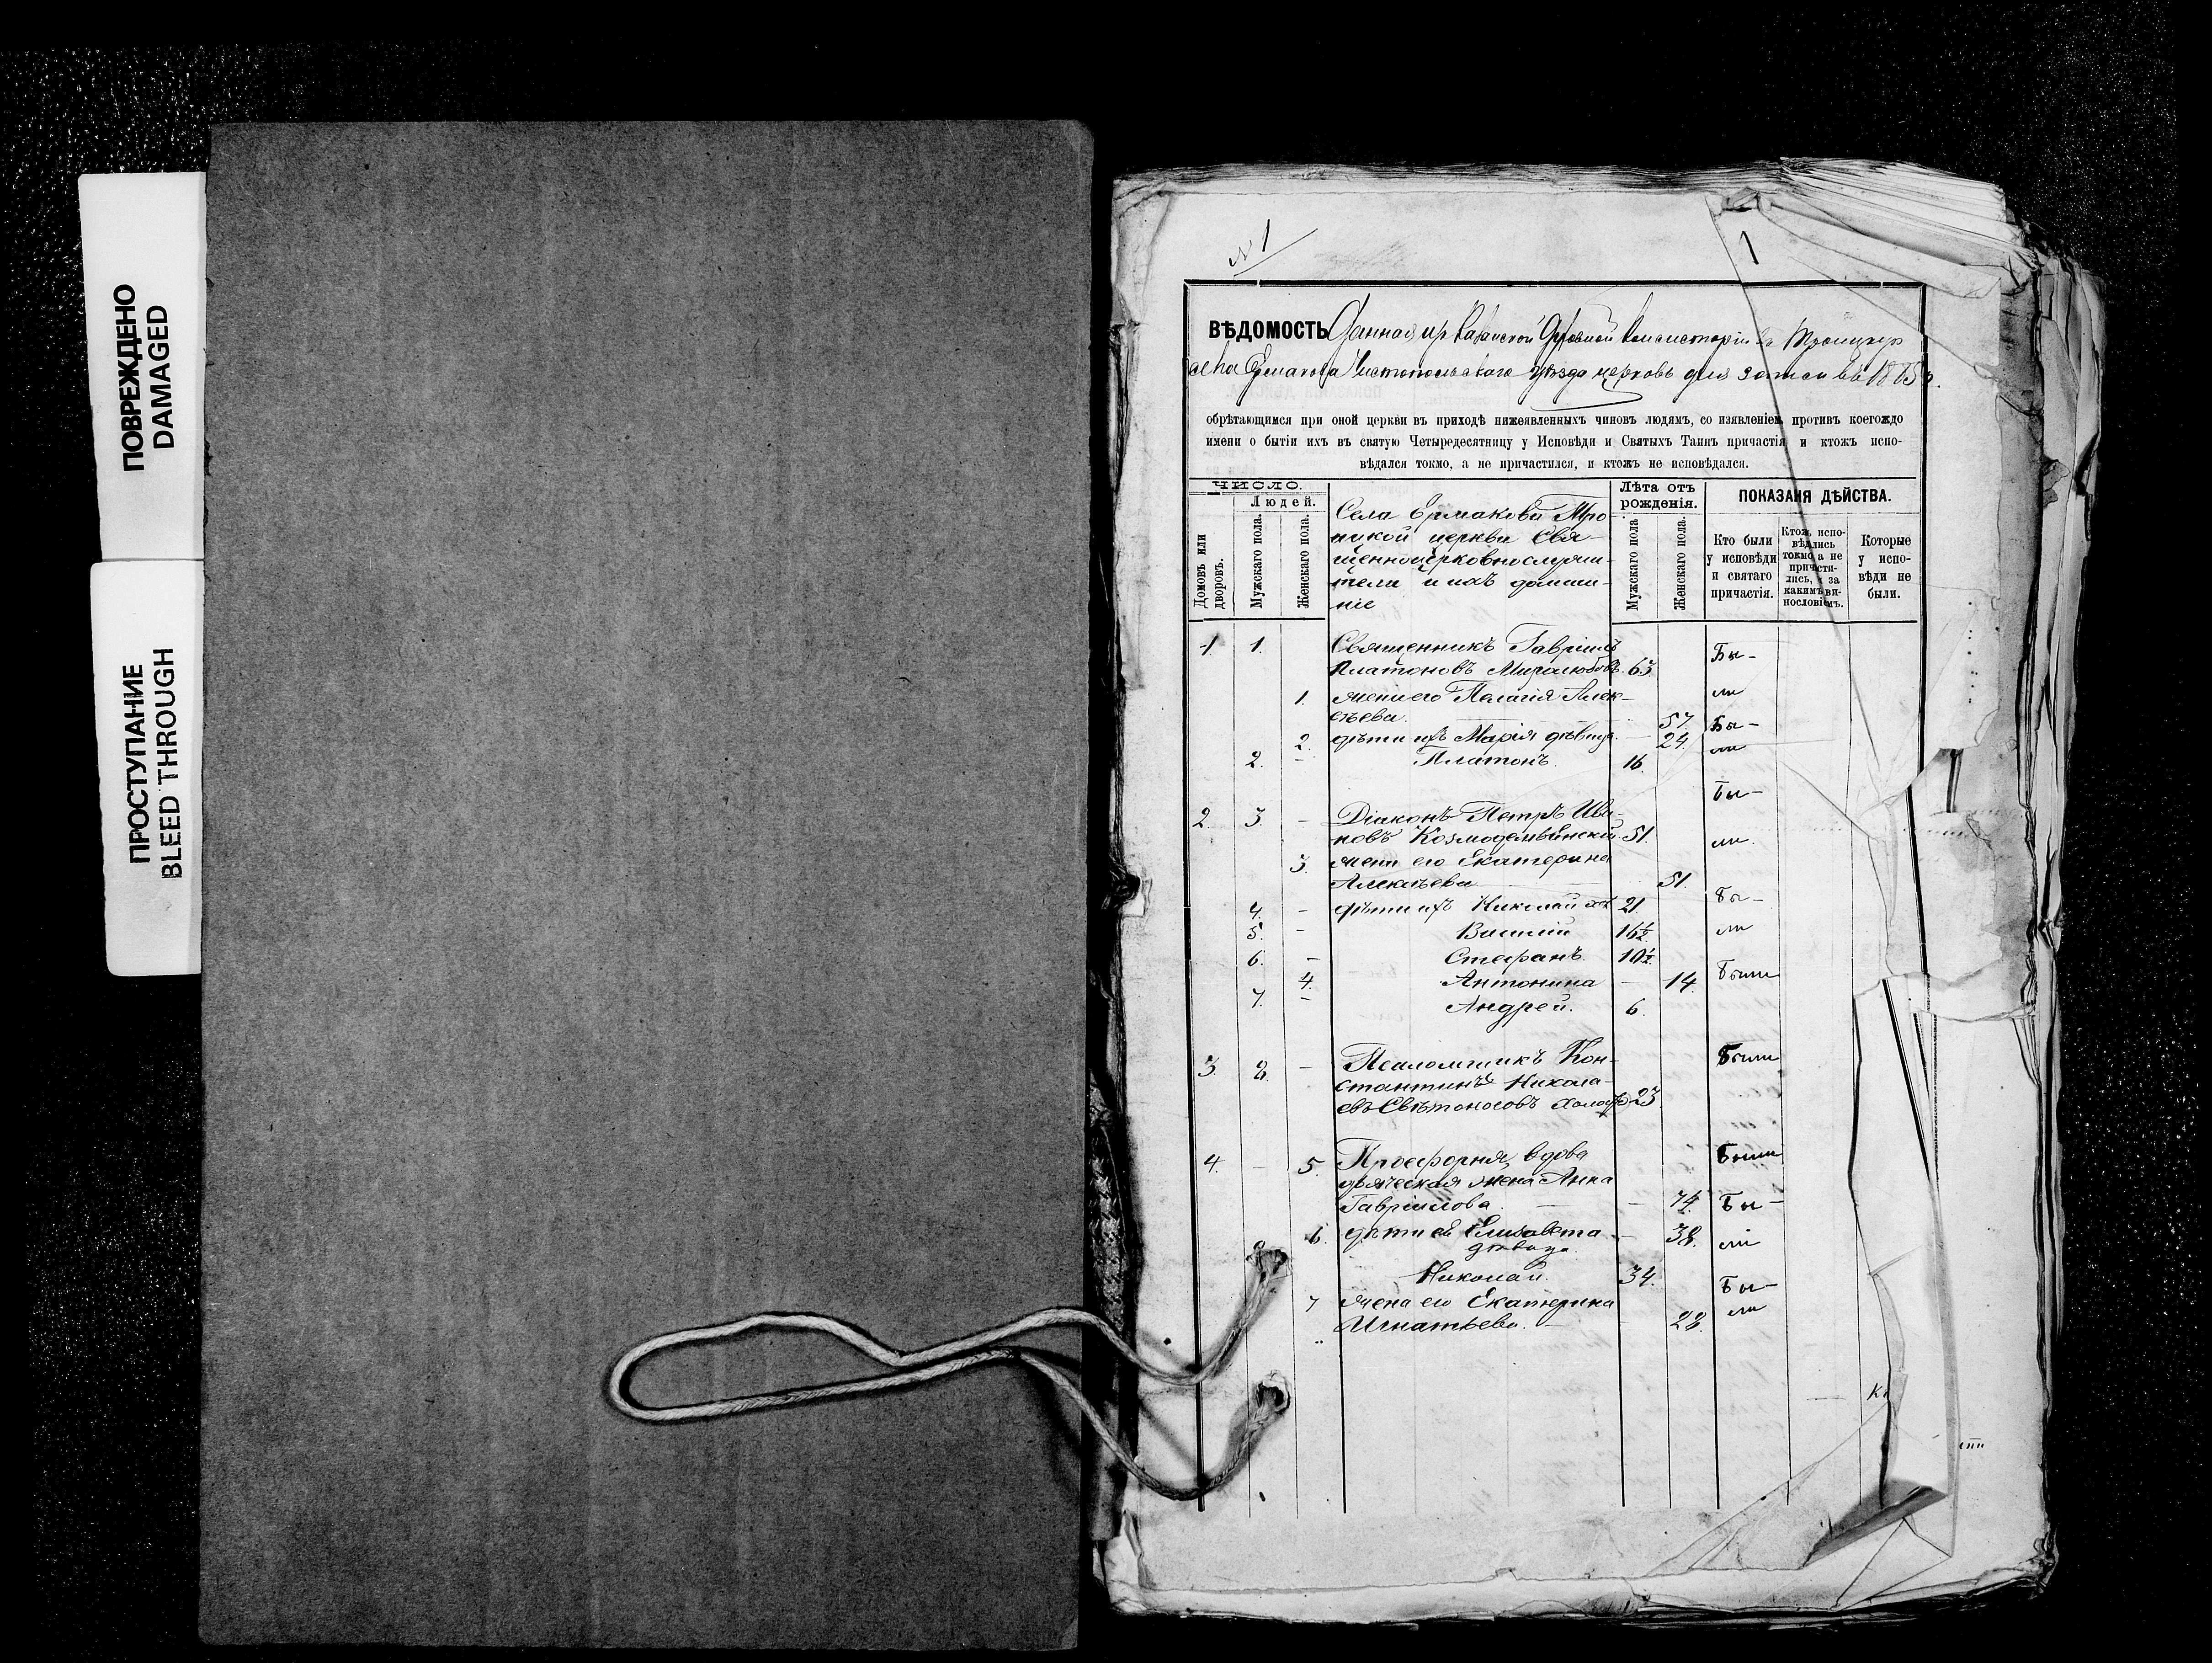 ПОВРЕЖДЕНО
DAMAGED
ПРОСТУПАНИЕ
BLEED THROUGH
№ 1
1
ВѢДОМОСТЬ Данная изъ Казанской Духовной Консисторіи въ Троицкую
села Ермакова Чистопольскаго уѣзда церковь для записи въ 1885 г.
обрѣтающимся при оной церкви въ приходѣ нижеявленныхъ чиновъ людямъ, со изявленіемъ противъ коегождо
имени о бытіи ихъ въ святую Четыредесятницу у Исповѣди и Святыхъ Таинъ причастія и ктожъ испо-
вѣдался токмо, а не причастился, и ктожъ не исповѣдался.
ЧИСЛО.
Домовъ или дворовъ.
Людей.
Мужскаго пола.
Женскаго пола.
Села Ермакова Тро-
ицкой церкви Свя-
щенноцерковнослужи-
тели и ихъ домаш-
ніе
Лѣта отъ рожденія.
Мужскаго пола
Женскаго пола.
ПОКАЗАНІЯ ДѢЙСТВА.
Кто были у исповѣди и святаго причастія.
Ктож. испо-вѣдлись токмо, а не причсти-лись, и за какимъ ви-нословіемъ.
Которые у испо-вѣди не были.
1 1. Священникъ Гавріилъ
Платоновъ Миролюбовъ. 63 Бы-
1. жена его Пелагія Алек- ли
сѣева. 57. Бы-
2. дѣти ихъ Марія дѣвица. — 24. ли
2. — Платонъ. 16.
Бы-
2. 3. — Діаконъ Петръ Ива-
новъ Козмодемьянскій 51. ли.
3. жена его Екатерина
Алексѣева 51.
4. — дѣти ихъ Николай 21. Бы-
5. — Василій 16½ ли
6. — Стефанъ. 10½
4. Антонина — 14. Были
7. — Андрей. 6.
3. 8. — Псаломщикъ Кон- Были
стантинъ Никола-
евъ Свѣтоносовъ холостъ 23.
4. — 5. Просфорня, вдова Были
дьяческая жена Анна
Гавріилова. — — 74. Бы-
6. дѣти ея Елизавета — 38. ли
дѣвица.
Николай. 34.
Бы-
7 жена его Екатерина ли
Игнатьева. — 28.